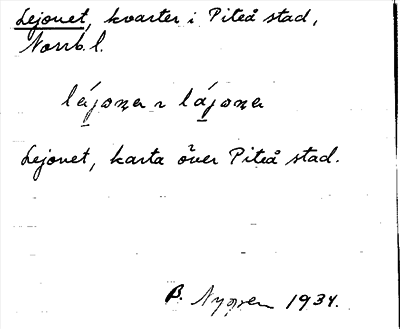 Lejonet, kvarter i Piteå stad,
Norrb. l.
lájona ~ lájona
Lejonet, karta över Piteå stad.
B. Nygren 1934.